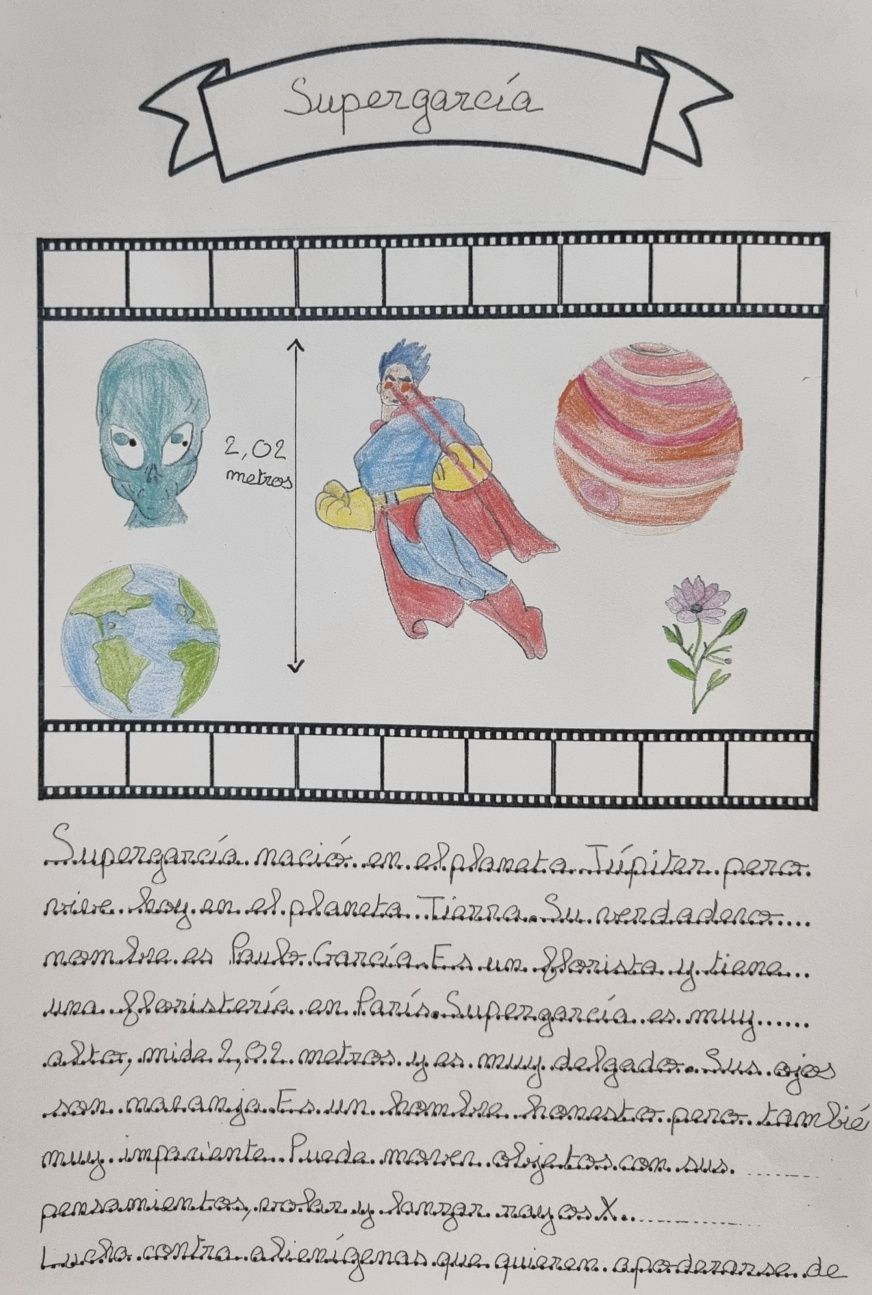 Supergarcía
2,02
metros
Supergarcía nació en el planeta Júpiter pero
vive hoy en el planeta Tierra. Su verdadero
nombre es Paulo García. Es un florista y tiene
una floristería en París. Supergarcía es muy
alto, mide 2,02 metros y es muy delgado. Sus ojos
son naranja. Es un hombre honesto pero tambié
muy impaciente. Puede mover objetos con sus
pensamientos, volar y lanzar rayos X.
Lucha contra alienígenas que quieren apoderarse de